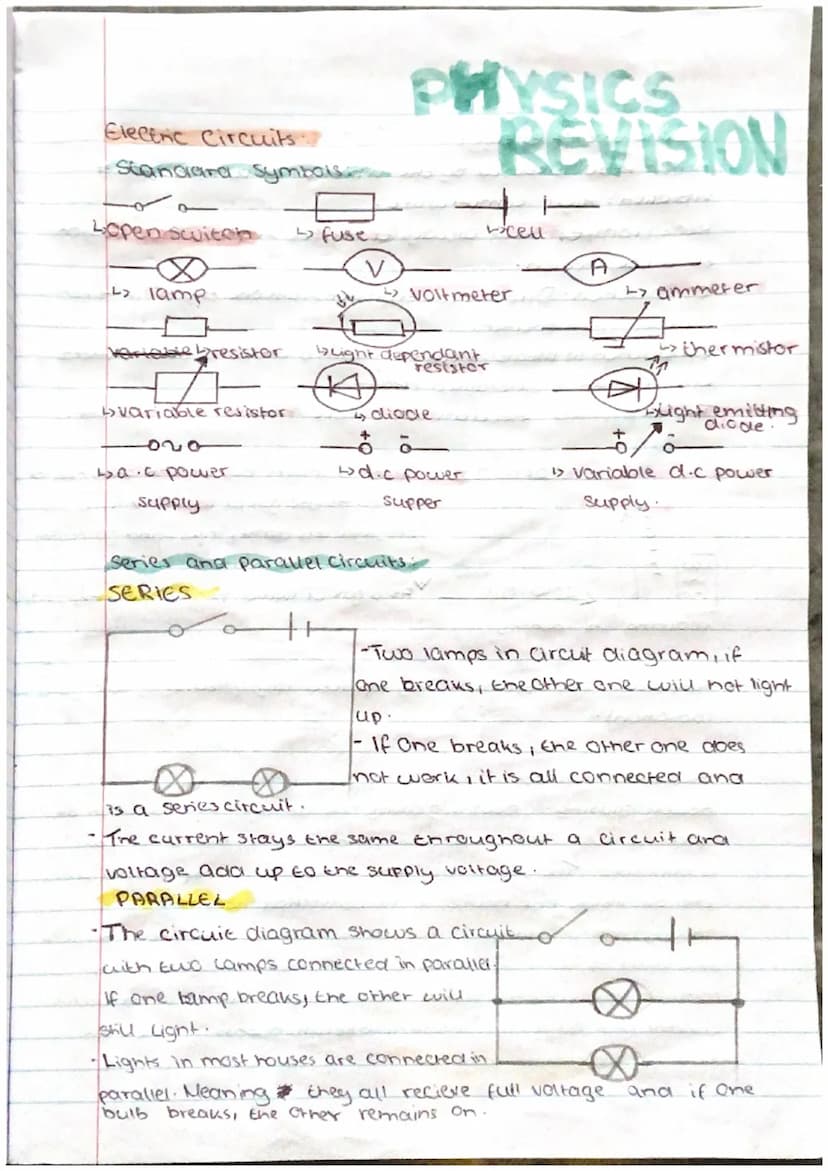 PHYSICS
REVISION
Electric Circuits.
Standard Symbols:
↳open switch ↳ fuse ↳cell
V A
↳ lamp ↳ voltmeter ↳ ammeter
variable ↳resistor ↳Light dependant ↳thermistor
resistor
↳variable resistor ↳ diode ↳Light emitting
diode.
+ - + -
↳a.c power ↳d.c power ↳ variable d.c power
supply supper supply.
series and parallel circuits:
SERIES
-Two lamps in circuit diagram, if
one breaks, the other one will not light
up.
- If one breaks, the other one does
not work, it is all connected and
is a series circuit.
- The current stays the same throughout a circuit and
voltage add up to the supply voltage.
PARALLEL
- The circuit diagram shows a circuit
with two lamps connected in parallel.
If one lamp breaks, the other will
still light.
- Lights in most houses are connected in
parallel. Meaning they all recieve full voltage and if one
bulb breaks, the other remains on.